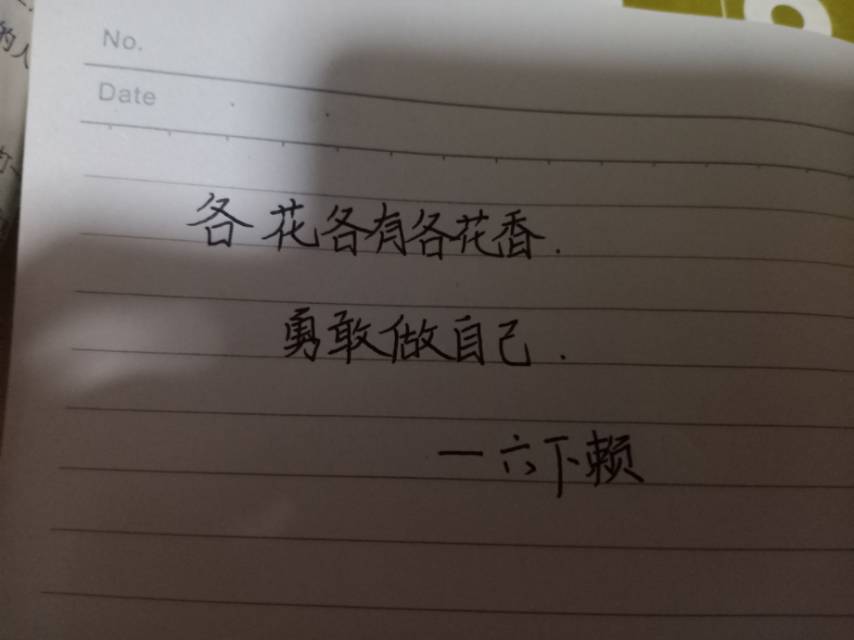 No.
Date
各花各有各花香.
勇敢做自己.
一六下赖
的人